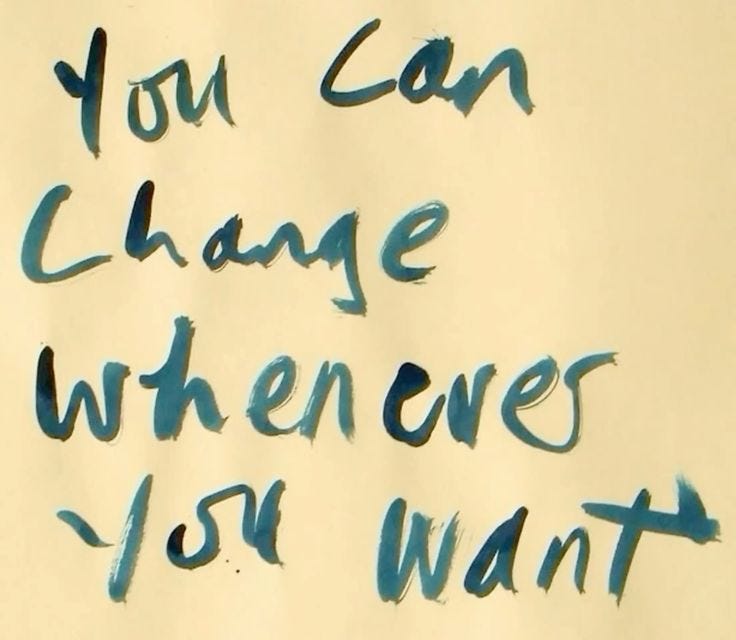 You Can
Change
whenever
You want